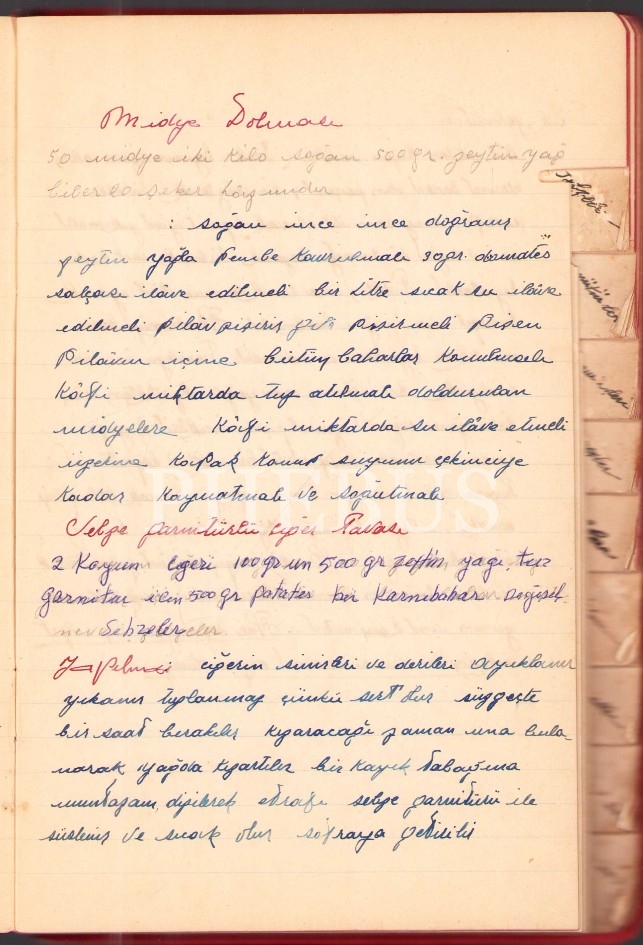 Midye Dolması
50 midye iki kilo soğan 500 gr. zeytin yağ
biber 20 şeker
: soğan ince ince doğranır
zeytin yağla pembe kavrulmalı 30 gr. domates
salçası ilâve edilmeli bir litre sıcak su ilâve
edilmeli pilâv pişirir gibi pişirmeli pişen
pilâvın içine bütün baharlar konulmalı
Kâfi miktarda tuz atılmalı doldurulan
midyelere Kâfi miktarda su ilâve etmeli
üzerine kapak konup suyunu çekinciye
kadar kaynatmalı ve soğutmalı
Sebze garnitürlü ciğer Tavası
2 Koyun ciğeri 100 gr un 500 gr zeytin yağı, tuz
garnitür için 500 gr patates bir Karnıbahar
Sebzeler
Yapılması ciğerin sinirleri ve derileri ayıklanır
yıkanır tuzlanmaz çünkü sert olur süzgeçte
bir saat bırakılır kızaracağı zaman una bula-
narak yağda kızartılır bir kayık tabağına
muntazam dizilerek etrafı sebze garnitürü ile
süslenir ve sıcak olur sofraya getirilir
PHEBUS